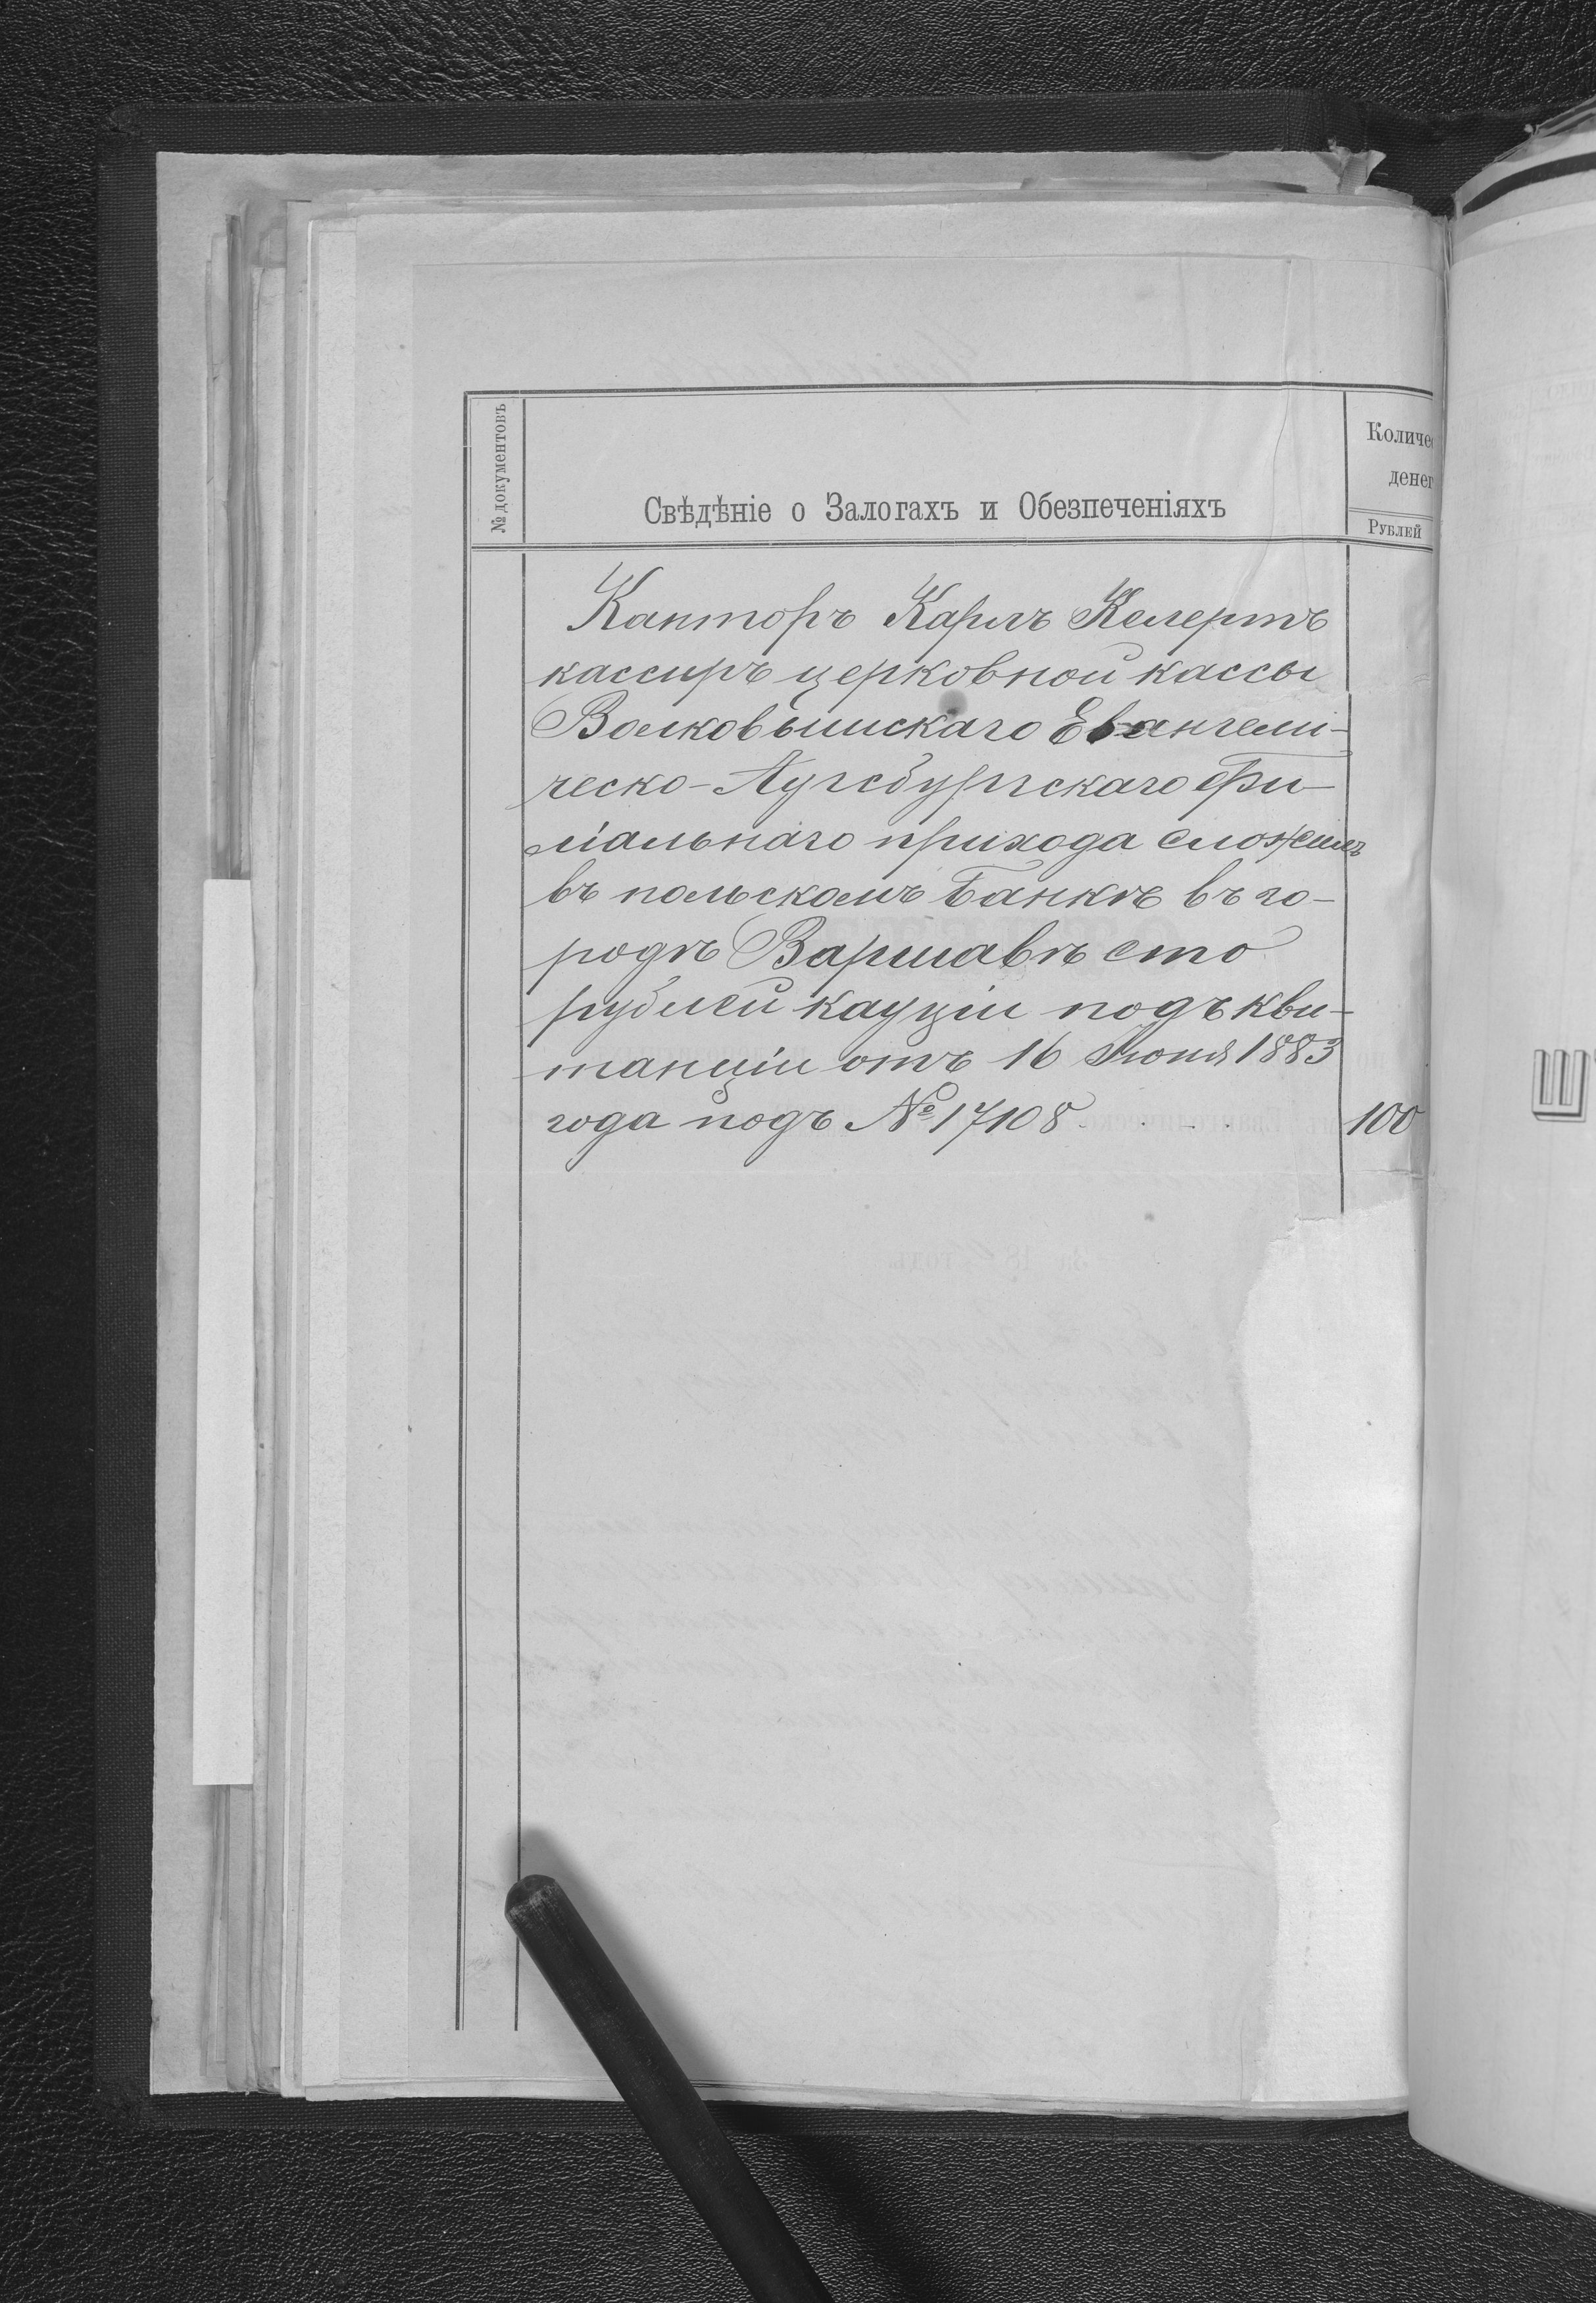 № документовъ
Свѣдѣніе о Залогахъ и Обезпеченіяхъ
Количес
денег
Рублей
Канторъ Карлъ Келертъ
кассиръ церковной кассы
Волковышскаго Евангели-
ческо-Аугсбургскаго Фи-
ліальнаго прихода сложилъ
въ польскомъ Банкѣ въ го-
родѣ Варшавѣ сто
рублей кауціи подъ кви-
танціи отъ 16 Іюня 1883
года подъ № 17108 100
Ш